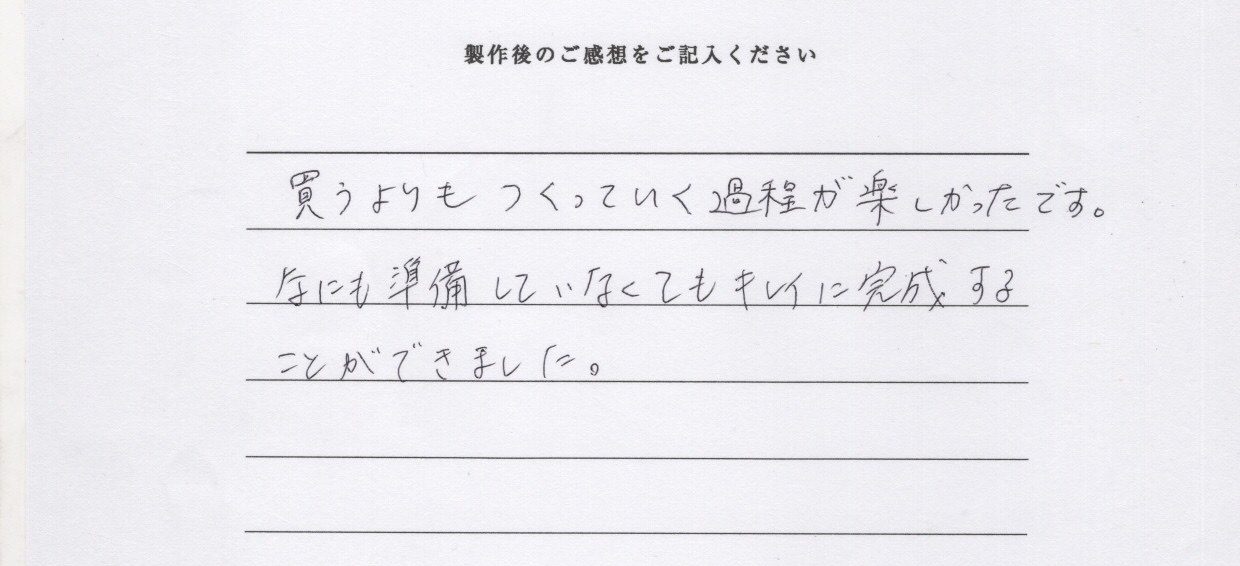 製作後のご感想をご記入ください
買うよりもつくっていく過程が楽しかったです。
なにも準備していなくてもキレイに完成する
ことができました。